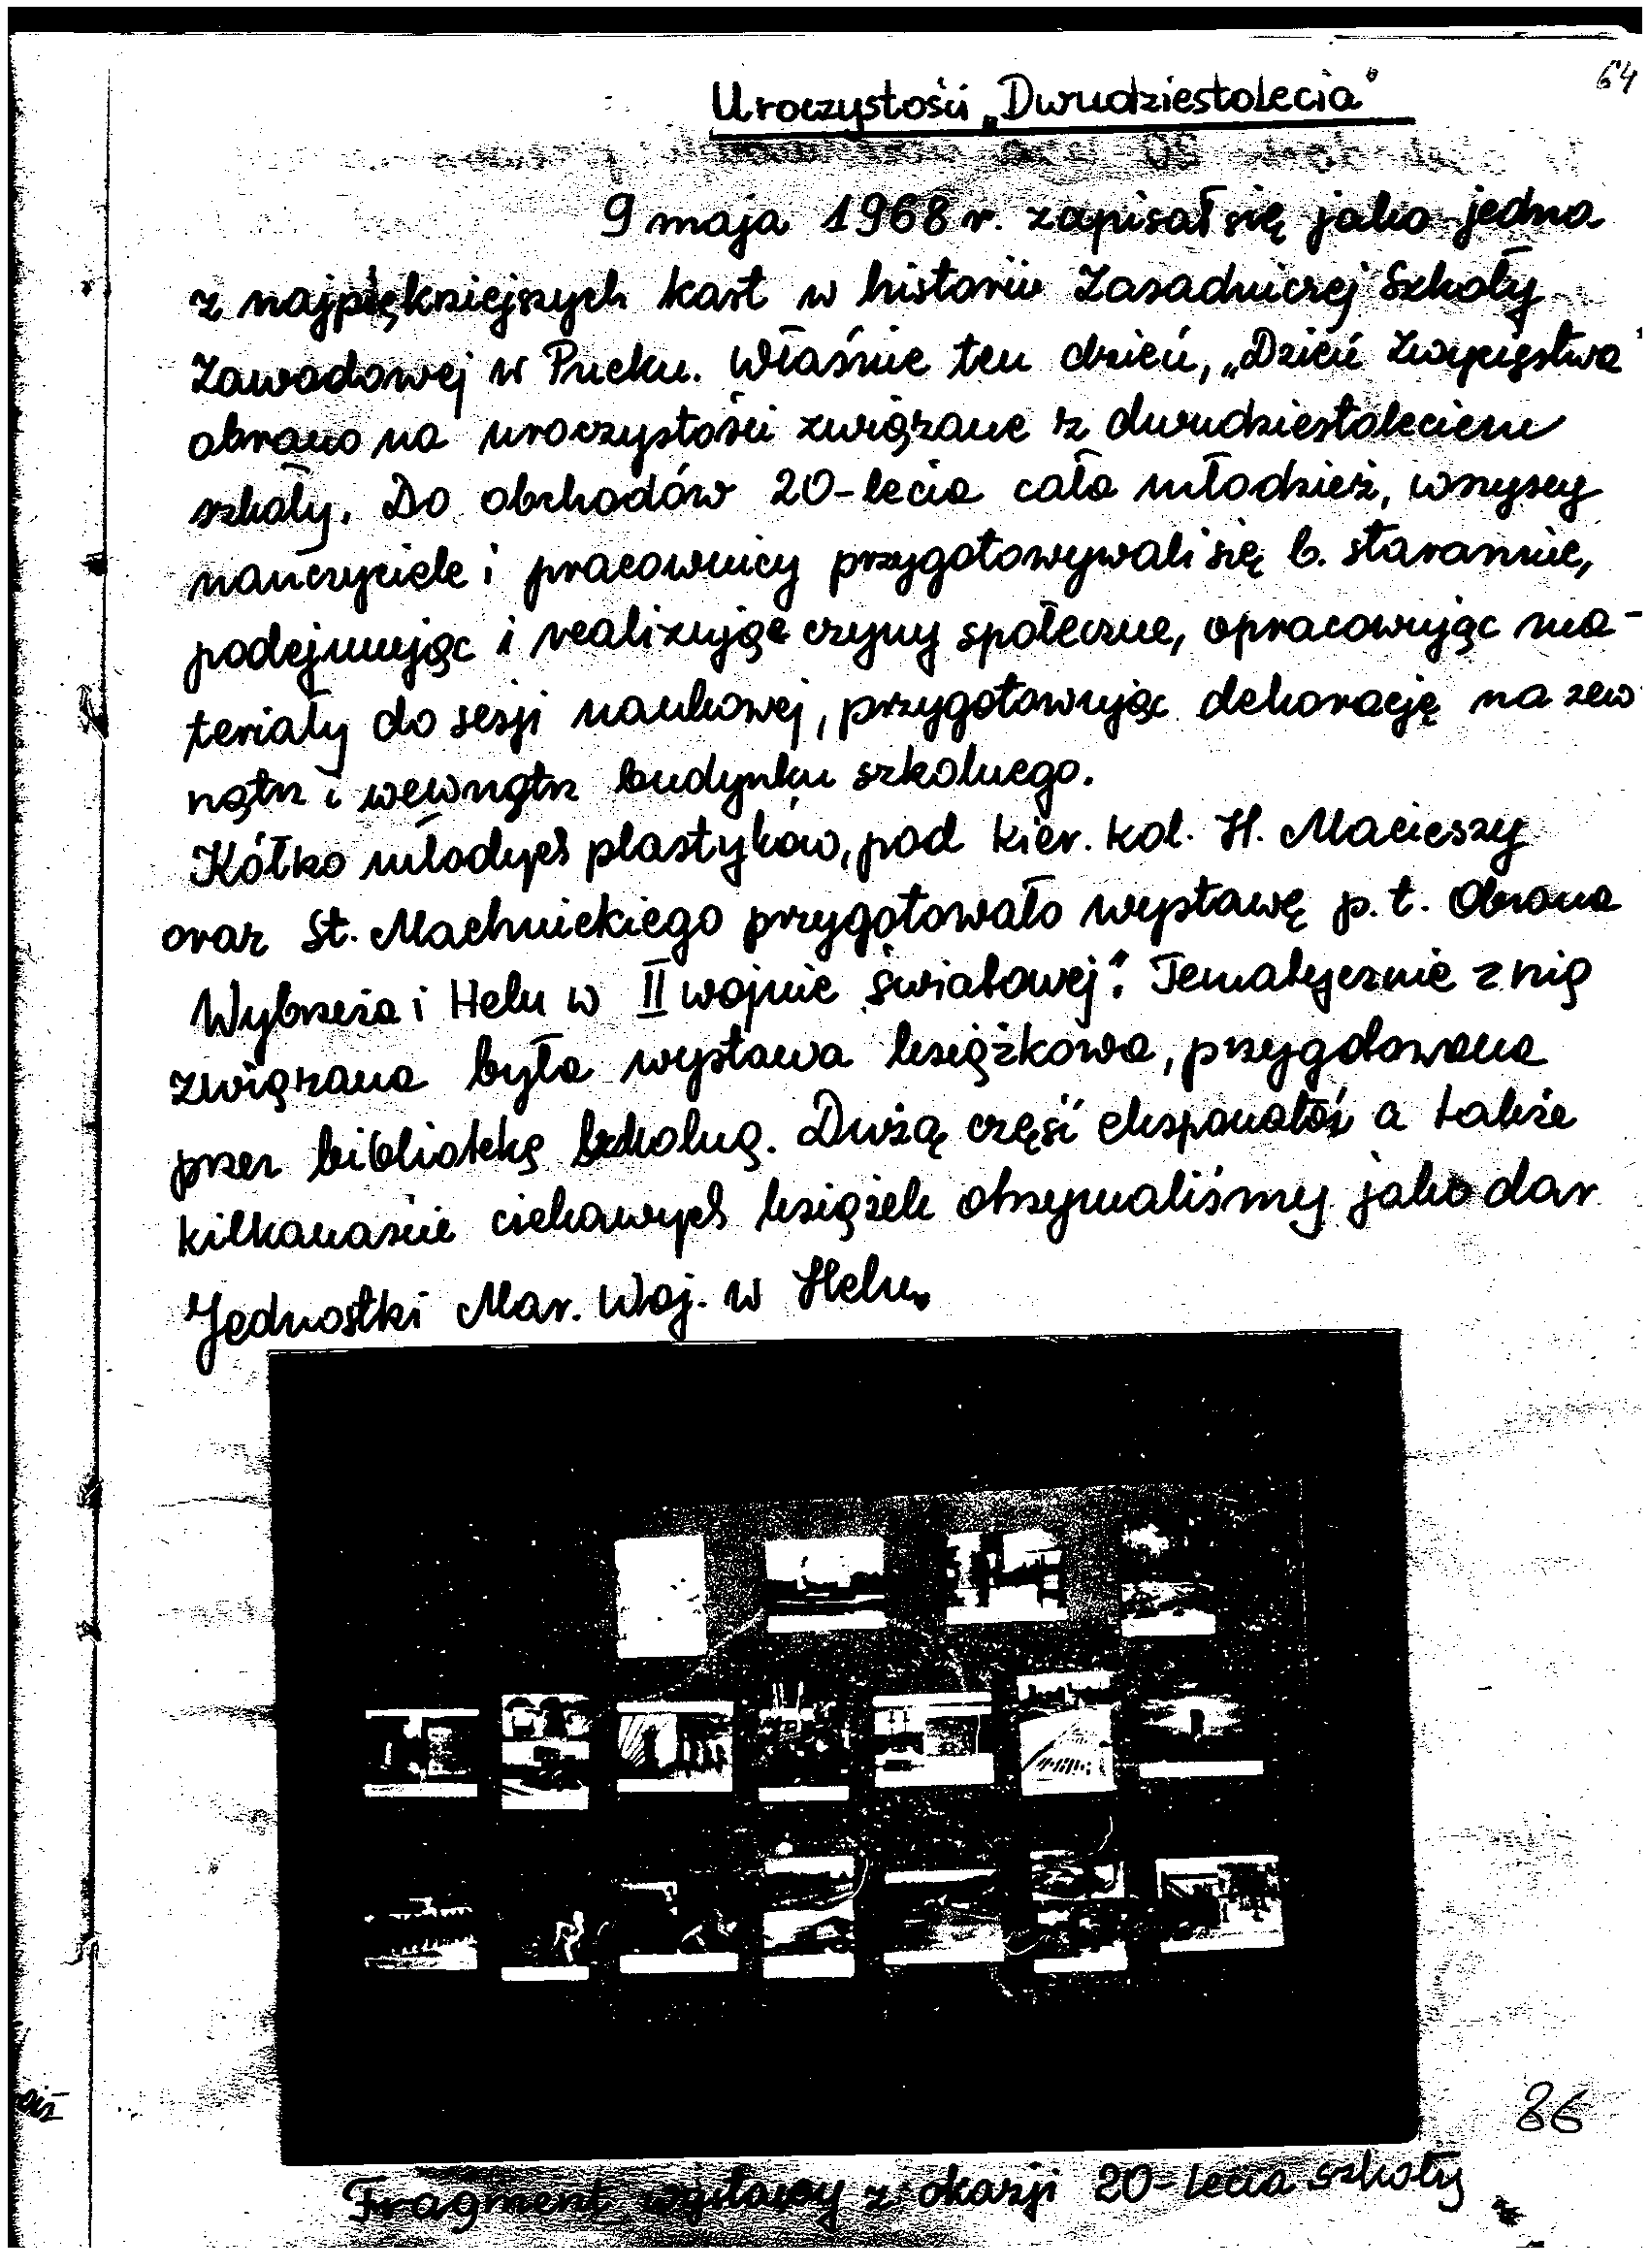 64
Uroczystości „Dwudziestolecia"
9 maja 1968 r. zapisał się jako jedna
z najpiękniejszych kart w historii Zasadniczej Szkoły
Zawodowej w Pucku. Właśnie ten dzień, „Dzień Zwycięstwa"
obrano na uroczystości związane z dwudziestoleciem
szkoły. Do obchodów 20-lecia cała młodzież, wszyscy
nauczyciele i pracownicy przygotowywali się b. starannie,
podejmując i realizując czyny społeczne, opracowując ma-
teriały do sesji naukowej, przygotowując dekorację na zew
nątrz i wewnątrz budynku szkolnego.
Kółko młodych plastyków, pod kier. kol. H. Macieszy
oraz St. Machnickiego przygotowało wystawę p.t. Obrona
Wybrzeża i Helu w II wojnie światowej". Tematycznie z nią
związana była wystawa książkowa, przygotowana
przez bibliotekę szkolną. Dużą część eksponatów a także
kilkanaście ciekawych książek otrzymaliśmy jako dar
Jednostki Mar. Woj. w Helu.
86
Fragment wystawy z okazji 20-lecia szkoły